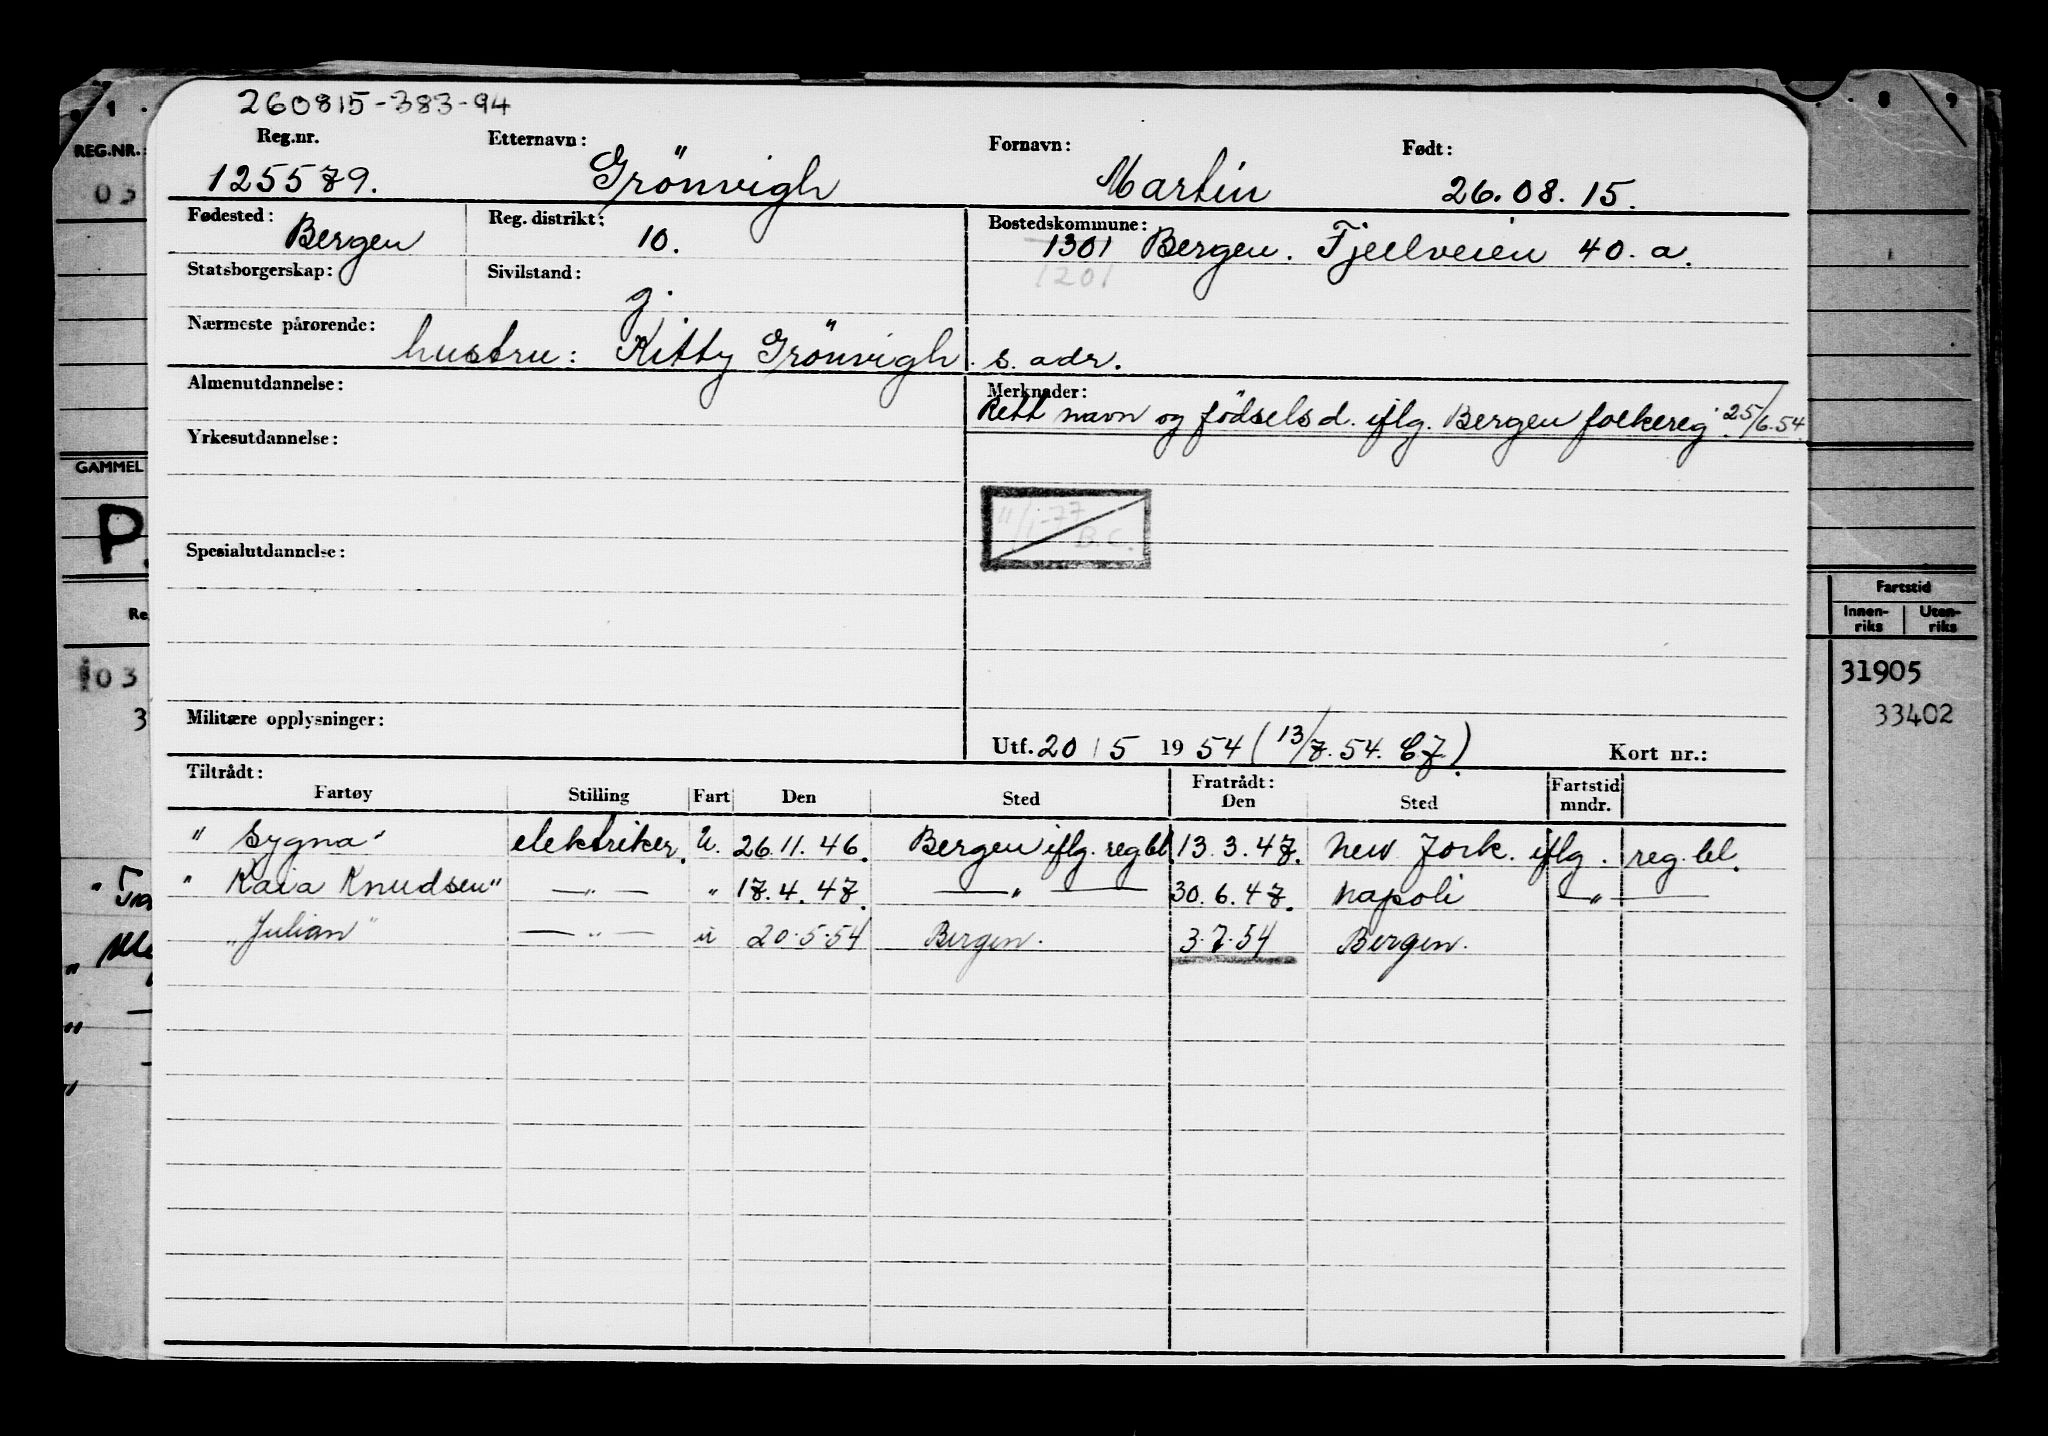 260815-383-94
Reg.nr. Etternavn: Fornavn: Født:
125579. Grönvigh Martin 26.08.15.
Fødested: Reg. distrikt: Bostedskommune:
Bergen 10. 1301 Bergen. Fjellveien 40.a.
Statsborgerskap: Sivilstand: 1201
g.
Nærmeste pårørende: hustru: Kitty Grönvigh. s. adr.
Almenutdannelse: Merknader:
Rett navn og födselsd. iflg. Bergen folkereg. 25/6.54.
Yrkesutdannelse:
11/1-77 B.C.
Spesialutdannelse:
Militære opplysninger: Utf. 20/5 1954 (13/7.54. EJ) Kort nr.:
Tiltrådt: Fratrådt: Fartstid
Fartøy Stilling Fart Den Sted Den Sted mndr.
"Sygna" elektriker. U. 26.11.46. Bergen iflg. reg bl. 13.3.47. New York. iflg. reg. bl.
"Kaia Knudsen" —"— " 17.4.47. —"— 30.6.47. Napoli —"—
"Julian" —"— u 20.5.54 Bergen. 3.7.54 Bergen.
REG.NR.:
03
GAMMEL
P.
Re
03
3
1
8 9
Fartstid
Innen-riks Uten-riks
31905
33402